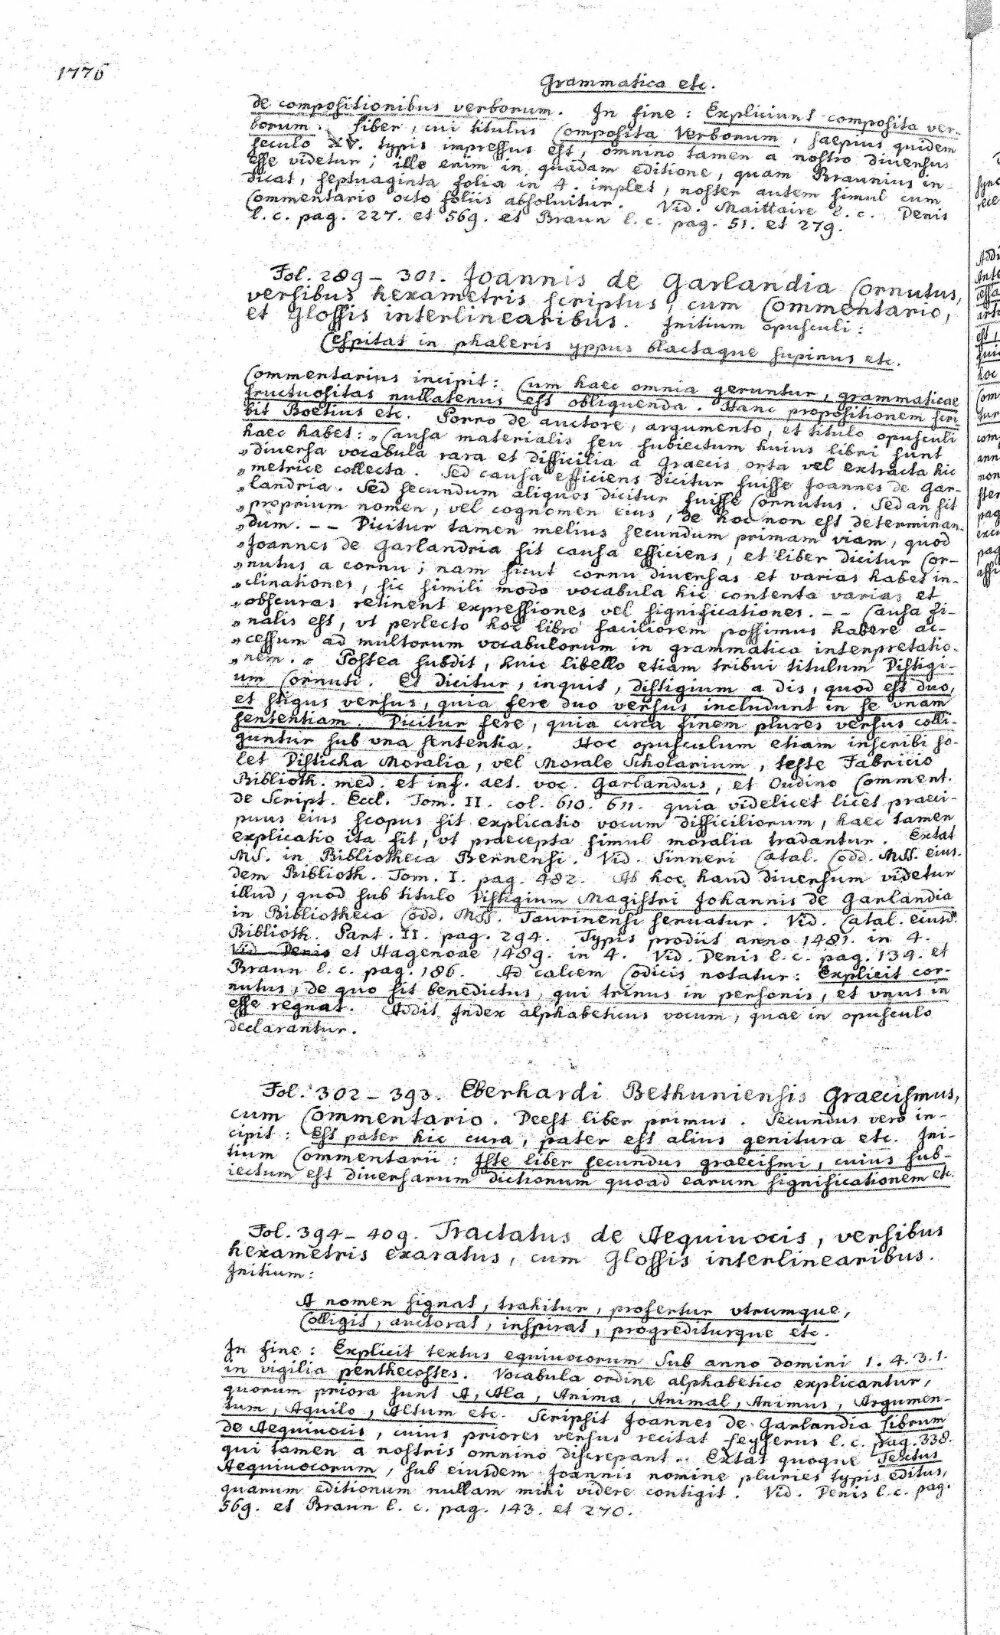 1776
Grammatica etc.
de compositionibus verborum. In fine: Expliciunt composita ver-
borum. Liber, cui titulus Composita Verborum, saepius quidem
seculo XV. typis impressus est, omnino tamen a nostro diuersus
esse videtur; ille enim in quadam editione, quam Braunius in-
dicat, septuaginta folia in 4. implet, noster autem simul cum
Commentario octo foliis absoluitur. Vid. Maittaire l. c. Denis
l. c. pag. 227. et 569. et Braun l. c. pag. 51. et 279.
Fol. 289 - 301. Joannis de Garlandia Cornutus,
versibus hexametris scriptus, cum Commentario,
et Glossis interlinearibus. Initium opusculi:
Cespitat in phaleris yppus blactaque supinus etc.
Commentarius incipit: Cum haec omnia geruntur, grammaticae
fructuositas nullatenus est obliquenda. Hanc propositionem scri-
bit Boetius etc. Porro de auctore, argumento, et titulo opusculi
haec habet: „Causa materialis seu subiectum huius libri sunt
„diuersa vocabula rara et difficilia a Graecis orta vel extracta hic
„metrice collecta. Sed causa efficiens dicitur fuisse Joannes de Gar-
„landria. Sed secundum aliquos dicitur fuisse Cornutus. Sed an sit
„proprium nomen, vel cognomen eius, de hoc non est determinan-
„dum. -- Dicitur tamen melius secundum primam viam, quod
„Joannes de Garlandria sit causa efficiens, et liber dicitur Cor-
„nutus a cornu; nam sicut cornu diuersas et varias habet in-
„clinationes, sic simili modo vocabula hic contenta varias et
„obscuras retinent expressiones vel significationes. -- Causa fi-
„nalis est, vt perlecto hoc libro faciliorem possimus habere ac-
„cessum ad multorum vocabulorum in grammatica interpretatio-
„nem. „ Postea subdit, huic libello etiam tribui titulum Distigi-
um Cornuti. Et dicitur, inquit, distigium a dis, quod est duo,
et stigus versus, quia fere duo versus includunt in se vnam
sententiam. Dicitur fere, quia circa finem plures versus colli-
guntur sub vna sententia. Hoc opusculum etiam inscribi so-
let Disticha Moralia, vel Morale Scholarium, teste Fabricio
Biblioth. med. et inf. aet. voc. Garlandus, et Oudino Comment.
de Script. Eccl. Tom. II. col. 610. 611. quia videlicet licet praeci-
puus eius scopus sit explicatio vocum difficiliorum, haec tamen
explicatio ita fit, vt praecepta simul moralia tradantur. Extat
MS. in Bibliotheca Bernensi. Vid. Sinneri Catal. Codd. MSS. eius-
dem Biblioth. Tom. I. pag. 482. Ab hoc haud diuersum videtur
illud, quod sub titulo Distigium Magistri Johannis de Garlandia
in Bibliotheca Codd. MSS. Taurinensi seruatur. Vid. Catal. eiusd.
Biblioth. Part. II. pag. 294. Typis prodiit anno 1481. in 4.
Vid. Denis et Hagenoae 1489. in 4. Vid. Denis l. c. pag. 134. et
Braun l. c. pag. 186. Ad calcem Codicis notatur: Explicit cor-
nutus, de quo sit benedictus, qui trinus in personis, et vnus in
esse regnat. Addit. Index alphabeticus vocum, quae in opusculo
declarantur.
Fol. 302 - 393. Eberhardi Bethuniensis Graecismus,
cum Commentario. Deest liber primus. Secundus vero in-
cipit: Est pater hic cura, pater est alius genitura etc. Ini-
tium Commentarii: Iste liber secundus graecismi, cuius sub-
iectum est diuersarum dictionum quoad earum significationem etc.
Fol. 394 - 409. Tractatus de Aequiuocis, versibus
hexametris exaratus, cum Glossis interlinearibus.
Initium:
A nomen signat, trahitur, profertur vtrumque,
Colligit, auctorat, inspirat, progrediturque etc.
In fine: Explicit textus equiuocorum sub anno domini 1. 4. 3. 1.
in vigilia penthecostes. Vocabula ordine alphabetico explicantur,
quorum priora sunt A, Ala, Anima, Animal, Animus, Argumen-
tum, Aquilo, Altum etc. Scripsit Joannes de Garlandia librum
de Aequiuocis, cuius priores versus recitat Leyserus l. c. pag. 338.
qui tamen a nostris omnino discrepant. Extat quoque Textus
Aequiuocorum, sub eiusdem Joannis nomine pluries typis editus,
quarum editionum nullam mihi videre contigit. Vid. Denis l. c. pag.
569. et Braun l. c. pag. 143. et 270.